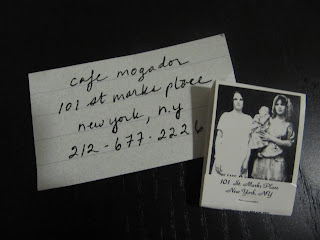 cafe mogador
101 st marks place
new york, n.y
212-677-2226
101 St. Marks Place
New York, NY